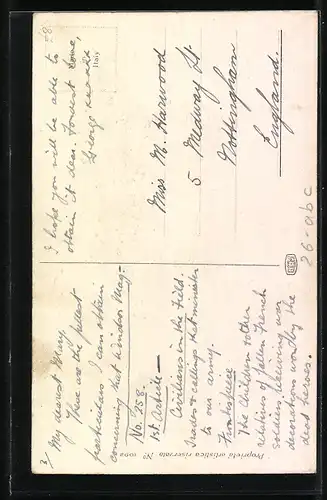 3/
My dearest Mary,
These are the fullest
particulars I can obtain
concerning that Windsor Mag:-
No. 258.
1st Article —
Civilians in the Field.
Trades & callings that minister
to our army.
Frontispiece
The children & other
relatives of fallen French
soldiers, receiving war
decorations worthy the
dead heroes.
I hope you will be able to
obtain it dear. Fondest love,
George xxxxxx
Italy
Miss M. Harwood
5 Medway St
Nottingham
England.
26-abc
Proprietà artistica riservata No